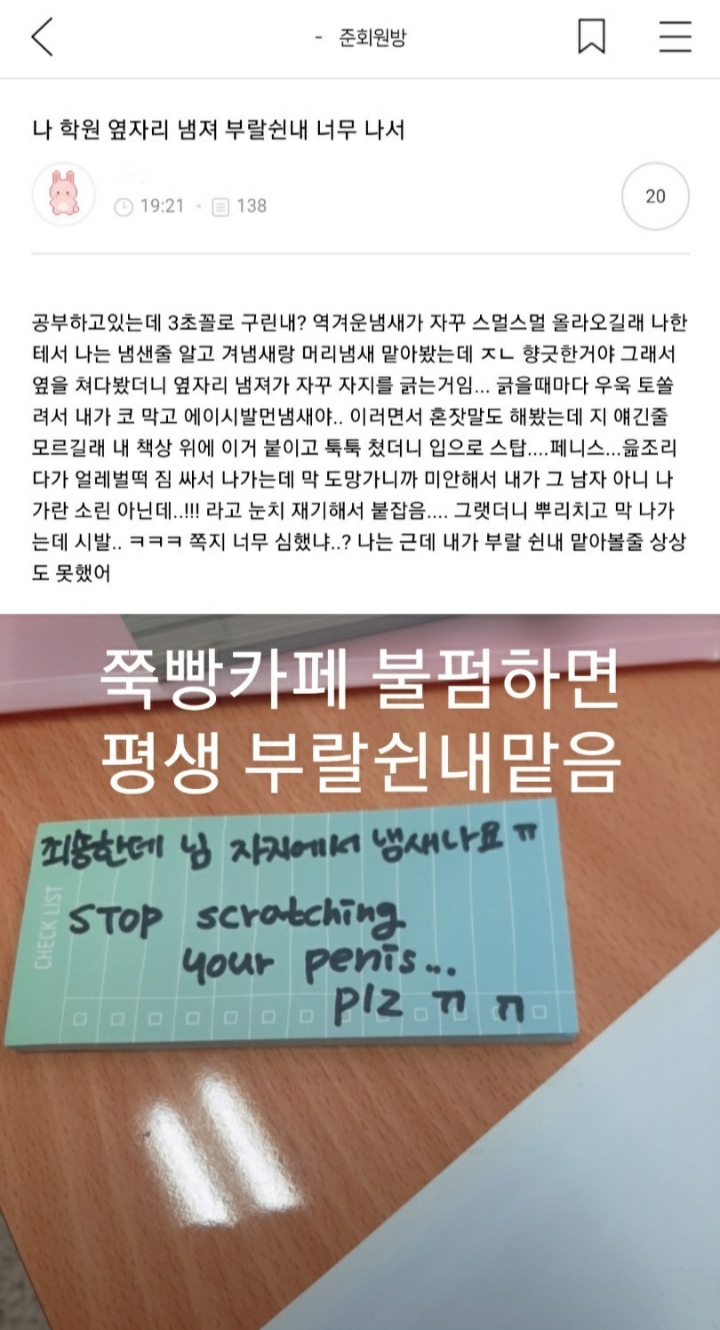 - 준회원방
나 학원 옆자리 냄져 부랄쉰내 너무 나서
19:21 · 138
20
공부하고있는데 3초꼴로 구린내? 역겨운냄새가 자꾸 스멀스멀 올라오길래 나한
테서 나는 냄샌줄 알고 겨냄새랑 머리냄새 맡아봤는데 ㅈㄴ 향긋한거야 그래서
옆을 쳐다봤더니 옆자리 냄져가 자꾸 자지를 긁는거임... 긁을때마다 우욱 토쏠
려서 내가 코 막고 에이시발먼냄새야.. 이러면서 혼잣말도 해봤는데 지 얘긴줄
모르길래 내 책상 위에 이거 붙이고 툭툭 쳤더니 입으로 스탑....페니스...읊조리
다가 얼레벌떡 짐 싸서 나가는데 막 도망가니까 미안해서 내가 그 남자 아니 나
가란 소린 아닌데..!!! 라고 눈치 재기해서 붙잡음.... 그랫더니 뿌리치고 막 나가
는데 시발.. ㅋㅋㅋ 쪽지 너무 심했냐..? 나는 근데 내가 부랄 쉰내 맡아볼줄 상상
도 못했어
쭉빵카페 불펌하면
평생 부랄쉰내맡음
죄송한데 님 자지에서 냄새나요ㅠ
CHECK LIST
STOP scratching
your penis...
plz ㅠ ㅠ